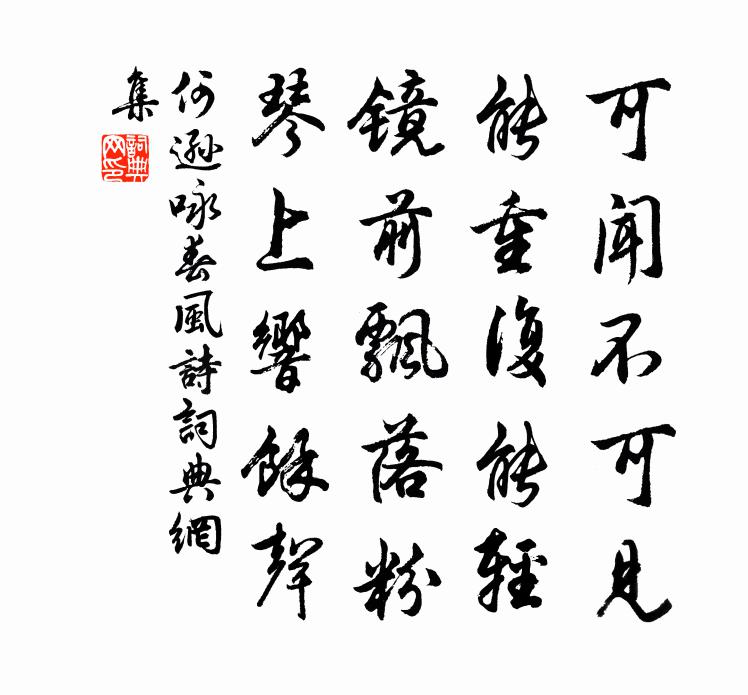 可聞不可見
能重復能輕
鏡前飄落粉
琴上響餘聲
何遜咏春風詩詞典網
集
詞典網印